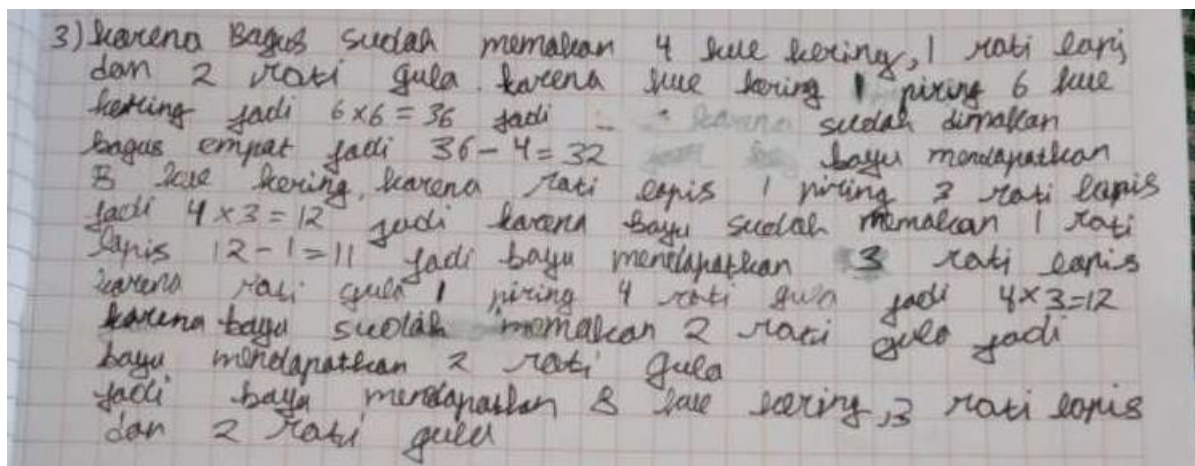 3) karena Bagus sudah memakan 4 kue kering, 1 roti lapis
dan 2 roti gula. karena kue kering 1 piring 6 kue
kering jadi 6x6=36 jadi sudah dimakan
bagus empat jadi 36-4=32 bayu mendapatkan
8 kue kering, karena roti lapis 1 piring 3 roti lapis
jadi 4x3=12 jadi karena bayu sudah memakan 1 roti
lapis 12-1=11 jadi bayu mendapatkan 3 roti lapis
karena roti gula 1 piring 4 roti gula jadi 4x3=12
karena bayu sudah memakan 2 roti gula jadi
bayu mendapatkan 2 roti gula
jadi bayu mendapatkan 8 kue kering, 3 roti lapis
dan 2 roti gula